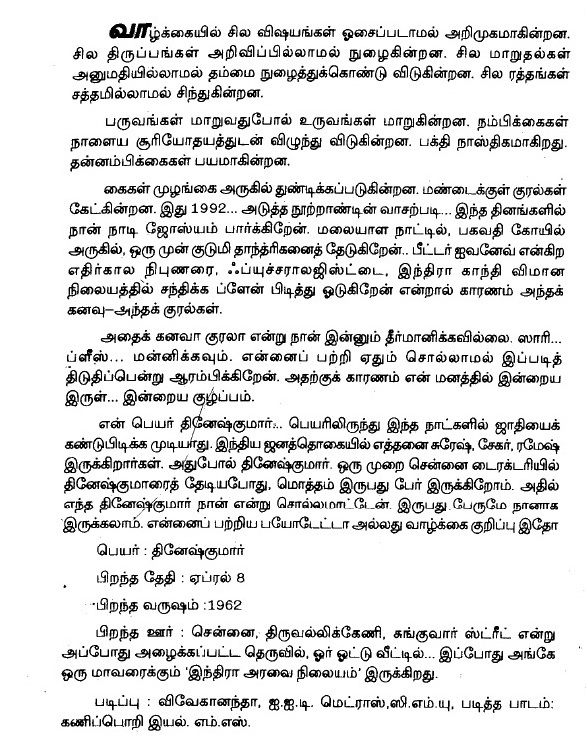 வாழ்க்கையில் சில விஷயங்கள் ஓசைப்படாமல் அறிமுகமாகின்றன.
சில திருப்பங்கள் அறிவிப்பில்லாமல் நுழைகின்றன. சில மாறுதல்கள்
அனுமதியில்லாமல் தம்மை நுழைத்துக்கொண்டு விடுகின்றன. சில ரத்தங்கள்
சத்தமில்லாமல் சிந்துகின்றன.
பருவங்கள் மாறுவதுபோல் உருவங்கள் மாறுகின்றன. நம்பிக்கைகள்
நாளைய சூரியோதயத்துடன் விழுந்து விடுகின்றன. பக்தி நாஸ்திகமாகிறது.
தன்னம்பிக்கைகள் பயமாகின்றன.
கைகள் முழங்கை அருகில் துண்டிக்கப்படுகின்றன. மண்டைக்குள் குரல்கள்
கேட்கின்றன. இது 1992... அடுத்த நூற்றாண்டின் வாசற்படி... இந்த தினங்களில்
நான் நாடி ஜோஸ்யம் பார்க்கிறேன். மலையாள நாட்டில், பகவதி கோயில்
அருகில், ஒரு முன் குடுமி தாந்த்ரிகனைத் தேடுகிறேன்.. பீட்டர் ஐவனேவ் என்கிற
எதிர்கால நிபுணரை, ஃப்யுச்சராலஜிஸ்ட்டை, இந்திரா காந்தி விமான
நிலையத்தில் சந்திக்க ப்ளேன் பிடித்து ஓடுகிறேன் என்றால் காரணம் அந்தக்
கனவு–அந்தக் குரல்கள்.
அதைக் கனவா குரலா என்று நான் இன்னும் தீர்மானிக்கவில்லை. ஸாரி...
ப்ளீஸ்... மன்னிக்கவும். என்னைப் பற்றி ஏதும் சொல்லாமல் இப்படித்
திடுதிப்பென்று ஆரம்பிக்கிறேன். அதற்குக் காரணம் என் மனத்தில் இன்றைய
இருள்... இன்றைய குழப்பம்.
என் பெயர் தினேஷ்குமார்... பெயரிலிருந்து இந்த நாட்களில் ஜாதியைக்
கண்டுபிடிக்க முடியாது. இந்திய ஜனத்தொகையில் எத்தனை சுரேஷ், சேகர், ரமேஷ்
இருக்கிறார்கள். அதுபோல் தினேஷ்குமார். ஒரு முறை சென்னை டைரக்டரியில்
தினேஷ்குமாரைத் தேடியபோது, மொத்தம் இருபது பேர் இருக்கிறோம். அதில்
எந்த தினேஷ்குமார் நான் என்று சொல்லமாட்டேன். இருபது பேருமே நானாக
இருக்கலாம். என்னைப் பற்றிய பயோடேட்டா அல்லது வாழ்க்கை குறிப்பு இதோ
பெயர் : தினேஷ்குமார்
பிறந்த தேதி : ஏப்ரல் 8
பிறந்த வருஷம் :1962
பிறந்த ஊர் : சென்னை, திருவல்லிக்கேணி, சுங்குவார் ஸ்ட்ரீட் என்று
அப்போது அழைக்கப்பட்ட தெருவில், ஓர் ஓட்டு வீட்டில்... இப்போது அங்கே
ஒரு மாவரைக்கும் 'இந்திரா அரவை நிலையம்' இருக்கிறது.
படிப்பு : விவேகானந்தா, ஐ.ஐ.டி. மெட்ராஸ்,ஸி.எம்.யு, படித்த பாடம்:
கணிப்பொறி இயல். எம்.எஸ்.